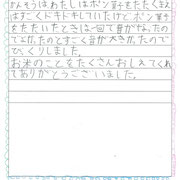 かんそうはわたしはポン菓子をたたくまえ
はすごくドキドキしていたけど、ポン菓子
をたたいたときは一回で音がなったの
でよかったのとすごく音が大きかったので
びっくりしました。
お米のことをたくさんおしえてくれ
てありがとうございました。